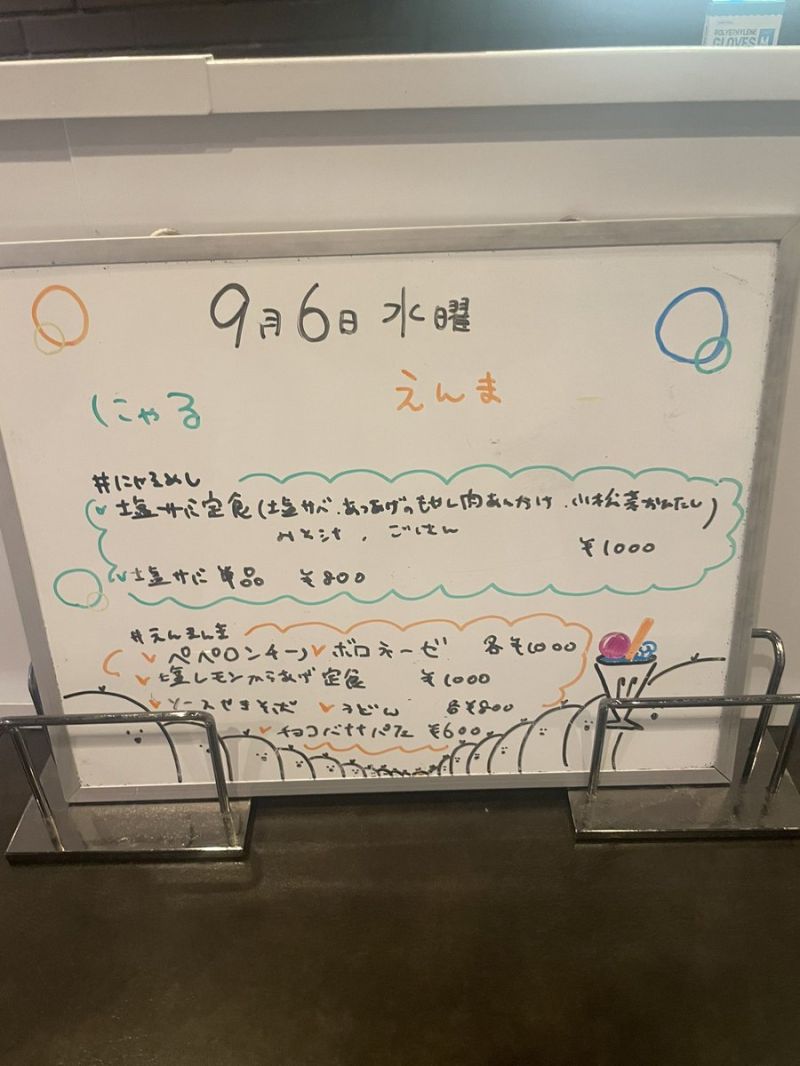 POLYETHYLENE
GLOVES M
9月6日 水曜
にゃる えんま
#にゃるめし
塩サバ定食(塩サバ、あつあげのもやし肉あんかけ、小松菜おひたし)
みそ汁、ごはん
¥1000
塩サバ単品 ¥800
#えんまんま
ペペロンチーノ ボロネーゼ 各¥1000
塩レモンからあげ定食 ¥1000
ソースやきそば うどん 各¥800
チョコバナナパフェ ¥600